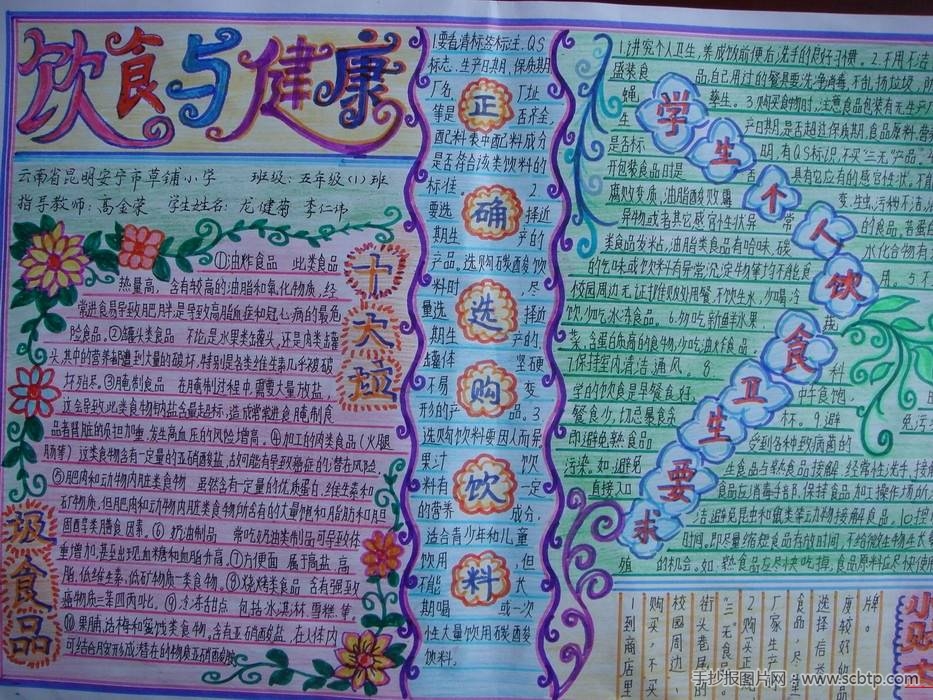 饮食与健康
云南省昆明安宁市草铺小学 班级：五年级（1）班
指导教师：高金荣 学生姓名：龙健菊 李仁伟
十大垃圾食品
①油炸食品 此类食品
热量高，含有较高的油脂和氧化物质，经
常进食易导致肥胖；是导致高脂血症和冠心病的最危
险食品。②罐头类食品 不论是水果类罐头，还是肉类罐
头，其中的营养都遭到大量的破坏，特别是各类维生素几乎被破
坏殆尽。③腌制食品 在腌制过程中，需要大量放盐，
这会导致此类食物钠盐含量超标，造成常常进食腌制食
品者肾脏的负担加重，发生高血压的风险增高。④加工的肉类食品（火腿
肠等）这类食物含有一定量的亚硝酸盐，故可能有导致癌症的潜在风险。
⑤肥肉和动物内脏类食物 虽然含有一定量的优质蛋白、维生素和
矿物质，但肥肉和动物内脏类食物所含有的大量饱和脂肪和胆
固醇类膳食因素。⑥奶油制品 常吃奶油类制品可导致体
重增加，甚至出现血糖和血脂升高。⑦方便面 属于高盐、高
脂、低维生素、低矿物质一类食物。⑧烧烤类食品 含有强致
癌物质三苯四丙吡。⑨冷冻甜点 包括冰淇淋、雪糕等。
⑩果脯、话梅和蜜饯类食物，含有亚硝酸盐，在人体内
可结合胺形成潜在的物质亚硝酸胺
正确选购饮料
1.要看清标签标注，QS
标志、生产日期、保质期
厂名 厂址
等是 否齐全，
配料表中配料成分
是否符合该类饮料的
标准。 2
要选 择近
期生 产的
产品。选购碳酸饮
料时 ，尽
量选 择近
期生 产的、
罐体 坚硬
不易 变
形的产 品。3
选购饮料要因人而异
果汁 饮
料有 一定
的营养 成分，
适合青少年和儿童
饮用 ，但
不能 长
期喝 或一次
性大量饮用碳酸
饮料。
学生个人饮食卫生要求
1.讲究个人卫生，养成饭前便后洗手的良好习惯。2.不用不洁
盛装食 品，自己用过的餐具要洗净消毒，不乱扔垃圾，防
蝇 孳生。3.购买食物时，注意食品包装有无生产厂
生 产日期，是否超过保质期，食品原料、营养
是否标 明，有QS标识，不买“三无”产品。
开包装食品时是 否 具有它应有的感官性状。不能
腐败变质、油脂酸败、霉 变、生虫、污秽不洁、
异物或者其它感官性状异 常 的食品，若蛋白
类食品发粘，油脂类食品有哈味，碳 水化合物有
的气味或饮料有异常沉淀物等均不能食 用。5.不
校园周边无证摊贩处用餐，不饮生水，勿喝冷
饮，勿吃水冻食品。6.勿吃新鲜水果、 蔬
菜、含蛋白质高的食物，少吃油炸食品。
7.保持室内清洁、通风。8. 科
学的饮食是早餐好， 中午食饱，
餐食少，切忌暴食杀
杯。9.避 免污
即避免熟食品 受到各种致病菌的
污染。如，避免 生食品与熟食品接触、经常性洗手、接触
直接入口 食品应消毒手部、保持食品加工操作场所
洁避免昆虫和鼠类等动物接触食品。10.控
时间。即尽量缩短食品存放时间，不给微生物生长繁
殖 的机会。如，熟食品应尽快吃掉，食品原料应尽快使用
1到商店里
购买，不买
校园周边、
街头巷尾的
“三无”食品。
2购买正规
厂家生产的
食品，尽
选择信誉
度较好的品
牌。
手抄报图片网 - www.scbtp.com